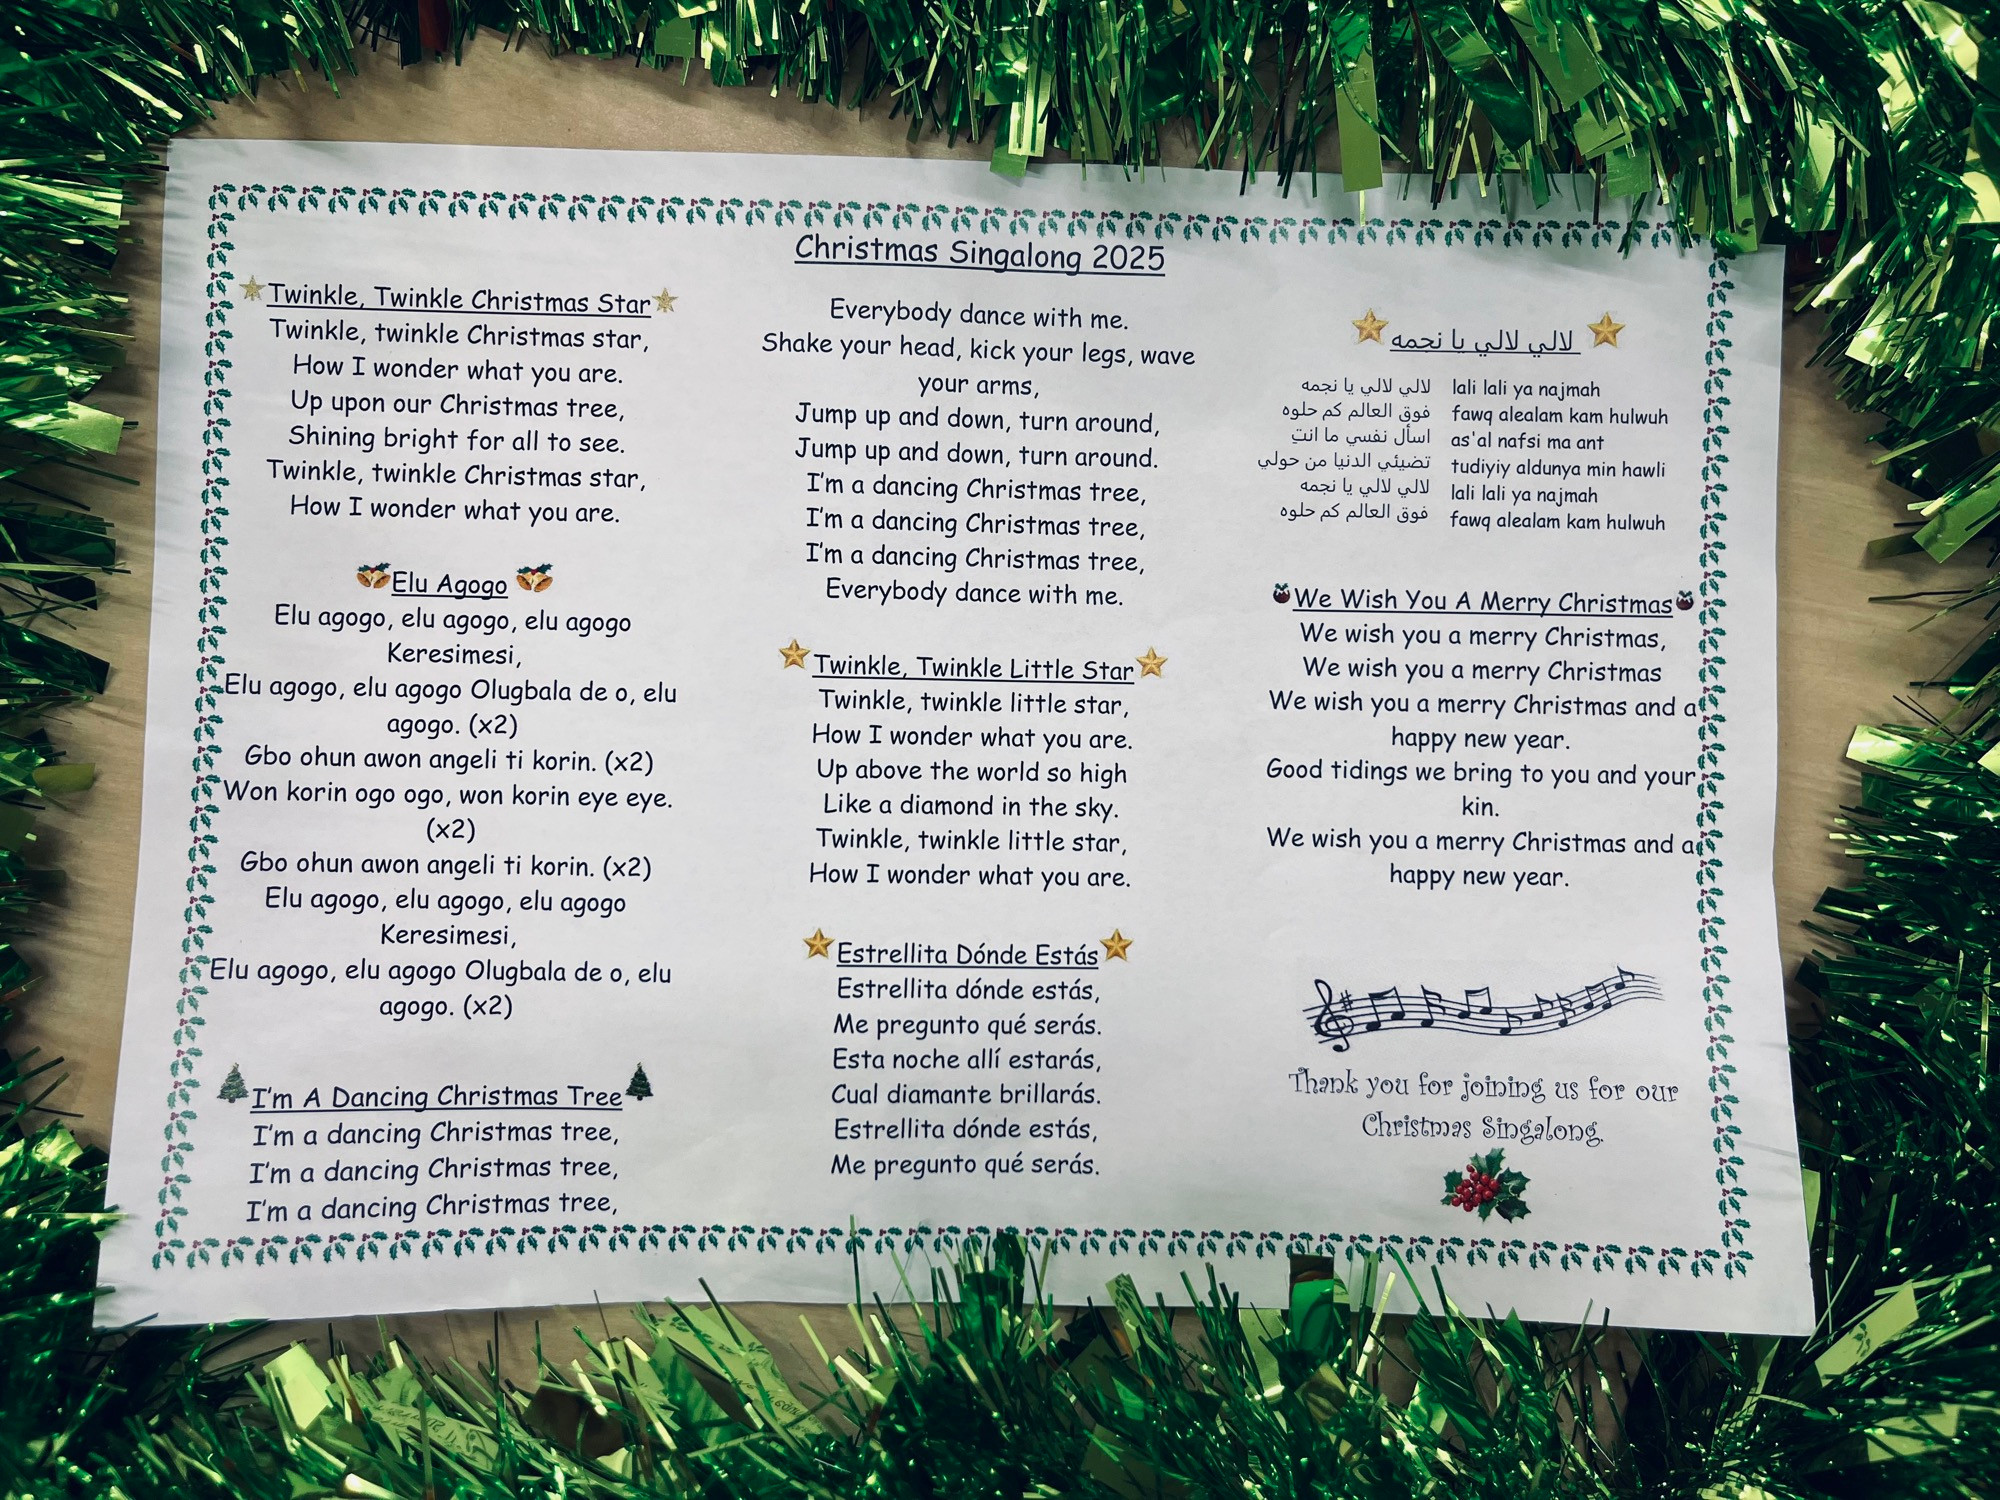 Christmas Singalong 2025
Twinkle, Twinkle Christmas Star
Twinkle, twinkle Christmas star,
How I wonder what you are.
Up upon our Christmas tree,
Shining bright for all to see.
Twinkle, twinkle Christmas star,
How I wonder what you are.
Elu Agogo
Elu agogo, elu agogo, elu agogo
Keresimesi,
Elu agogo, elu agogo Olugbala de o, elu
agogo. (x2)
Gbo ohun awon angeli ti korin. (x2)
Won korin ogo ogo, won korin eye eye.
(x2)
Gbo ohun awon angeli ti korin. (x2)
Elu agogo, elu agogo, elu agogo
Keresimesi,
Elu agogo, elu agogo Olugbala de o, elu
agogo. (x2)
I'm A Dancing Christmas Tree
I'm a dancing Christmas tree,
I'm a dancing Christmas tree,
I'm a dancing Christmas tree,
Everybody dance with me.
Shake your head, kick your legs, wave
your arms,
Jump up and down, turn around,
Jump up and down, turn around.
I'm a dancing Christmas tree,
I'm a dancing Christmas tree,
I'm a dancing Christmas tree,
Everybody dance with me.
Twinkle, Twinkle Little Star
Twinkle, twinkle little star,
How I wonder what you are.
Up above the world so high
Like a diamond in the sky.
Twinkle, twinkle little star,
How I wonder what you are.
Estrellita Dónde Estás
Estrellita dónde estás,
Me pregunto qué serás.
Esta noche allí estarás,
Cual diamante brillarás.
Estrellita dónde estás,
Me pregunto qué serás.
لالي لالي يا نجمه
لالي لالي يا نجمه lali lali ya najmah
فوق العالم كم حلوه fawq alealam kam hulwuh
اسأل نفسي ما انت as'al nafsi ma ant
تضيئي الدنيا من حولي tudiyiy aldunya min hawli
لالي لالي يا نجمه lali lali ya najmah
فوق العالم كم حلوه fawq alealam kam hulwuh
We Wish You A Merry Christmas
We wish you a merry Christmas,
We wish you a merry Christmas
We wish you a merry Christmas and a
happy new year.
Good tidings we bring to you and your
kin.
We wish you a merry Christmas and a
happy new year.
Thank you for joining us for our
Christmas Singalong.